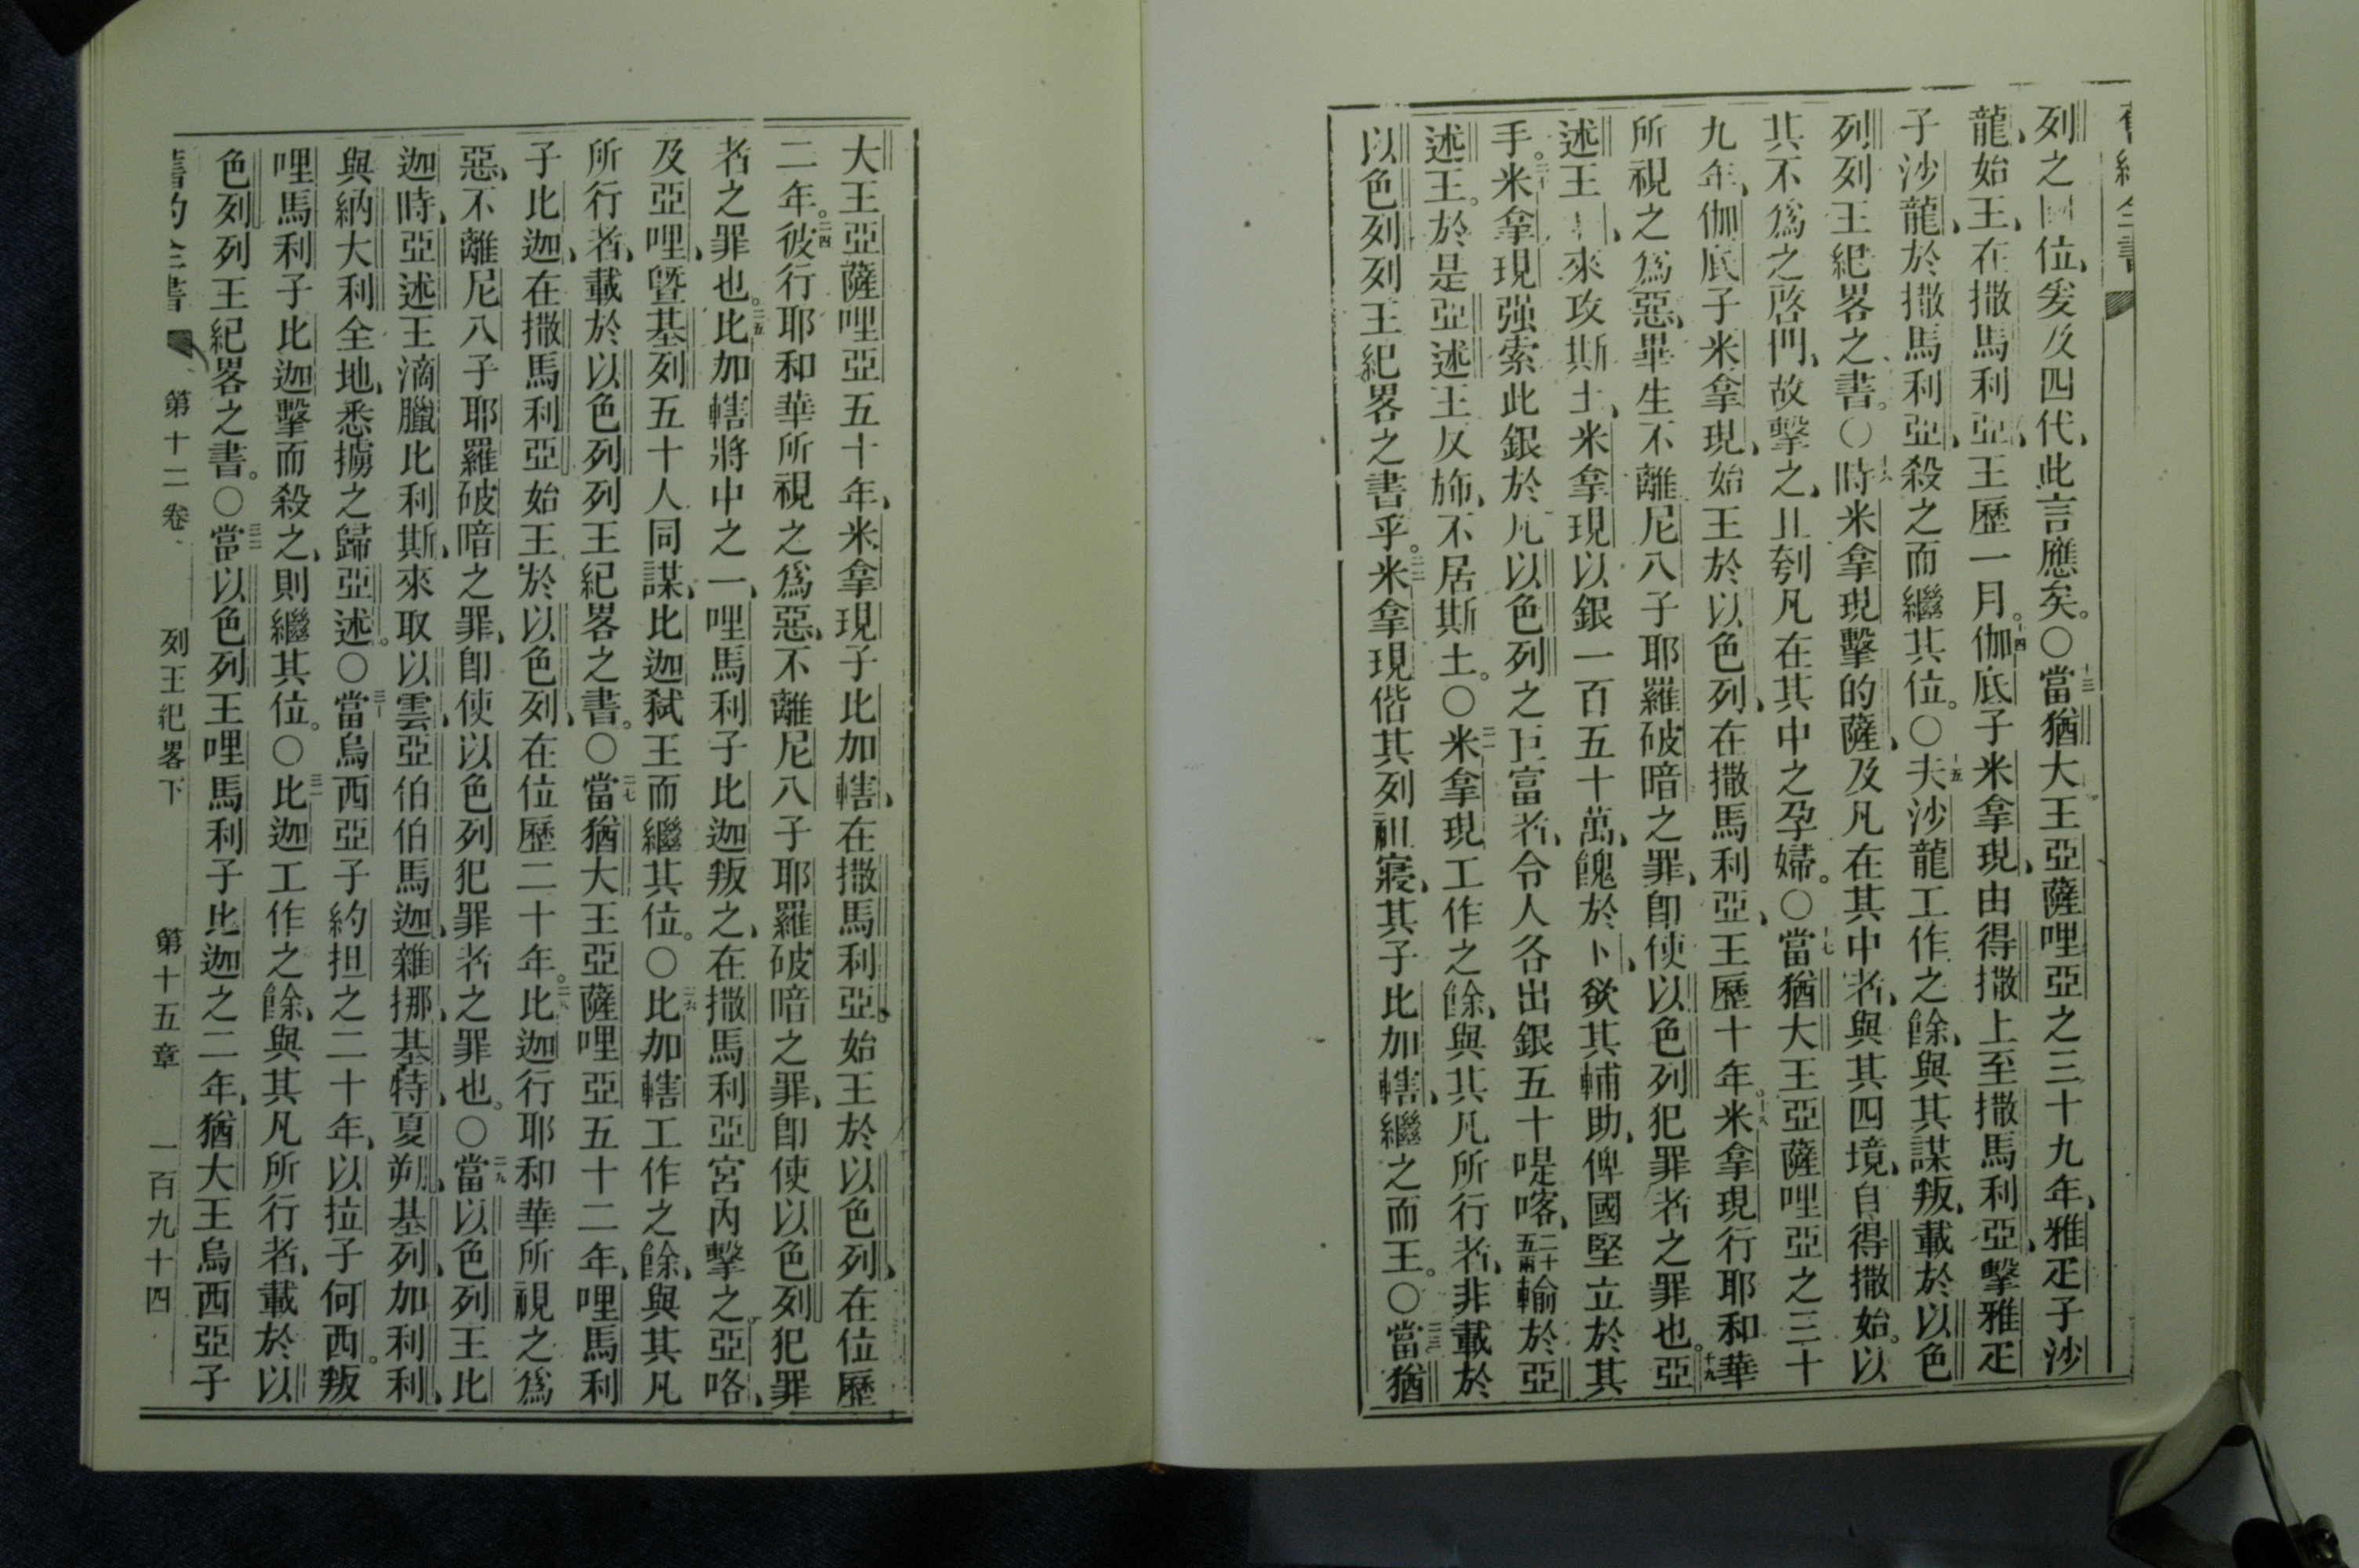 列之國位、爰及四代、此言應矣。○十三當猶大王亞薩哩亞之三十九年、雅疋子沙
龍、始王、在撒馬利亞、王歷一月。十四伽底子米拿現、由得撒上至撒馬利亞、擊雅疋
子沙龍、於撒馬利亞、殺之而繼其位。○十五夫沙龍工作之餘、與其謀叛、載於以色
列列王紀畧之書。○十六時米拿現擊的薩、及凡在其中者、與其四境、自得撒始。以
其不爲之啓門、故擊之、且刳凡在其中之孕婦。○十七當猶大王亞薩哩亞之三十
九年、伽底子米拿現、始王於以色列、在撒馬利亞、王歷十年。十八米拿現行耶和華
所視之爲惡、畢生不離尼八子耶羅破暗之罪、卽使以色列犯罪者之罪也。十九亞
述王、來攻斯土、米拿現以銀一百五十萬、餽於卜、欲其輔助、俾國堅立於其
手。二十米拿現强索此銀於凡以色列之巨富者、令人各出銀五十㖷喀、二十五兩輸於亞
述王。於是亞述王反斾、不居斯土。○二一米拿現工作之餘、與其凡所行者、非載於
以色列列王紀畧之書乎。二二米拿現偕其列祖寢、其子比加轄、繼之而王。○二三當猶
大王亞薩哩亞五十年、米拿現子比加轄、在撒馬利亞、始王於以色列、在位歷
二年。二四彼行耶和華所視之爲惡、不離尼八子耶羅破暗之罪、卽使以色列犯罪
者之罪也。二五比加轄將中之一、哩馬利子比迦叛之、在撒馬利亞宮內擊之。亞咯、
及亞哩、曁基列五十人同謀、比迦弒王而繼其位。○二六比加轄工作之餘、與其凡
所行者、載於以色列列王紀畧之書。○二七當猶大王亞薩哩亞五十二年、哩馬利
子比迦、在撒馬利亞始王於以色列、在位歷二十年。二八比迦行耶和華所視之爲
惡、不離尼八子耶羅破暗之罪、卽使以色列犯罪者之罪也。○二九當以色列王比
迦時、亞述王滴臘比利斯、來取以雲、亞伯伯馬迦、雜挪、基特、夏朔、基列、加利利、
與納大利全地、悉擄之歸亞述。○三十當烏西亞子約担之二十年、以拉子何西。叛
哩馬利子比迦擊而殺之、則繼其位。○三一比迦工作之餘、與其凡所行者、載於以
色列列王紀畧之書。○三二當以色列王哩馬利子比迦之二年、猶大王烏西亞子
第十二卷 列王紀畧下 第十五章 一百九十四